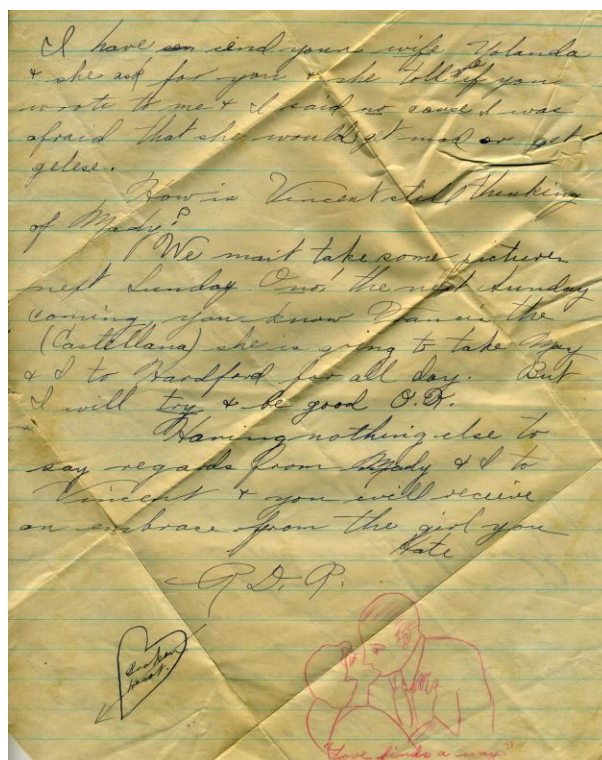 I have send yours wife Yolanda
& she ask for you & she told if you
wrote to me & I said no cause I was
afraid that she would get mad or get
gelese.
How is Vincent still thinking
of Mady?
We mait take some pictures
next Sunday O no' the next Sunday
coming, you know Francis the
(Castellana) she is going to take May
& I to Hardford for all day. But
I will try & be good O.K.
Having nothing else to
say regards from Mady & I to
Vincent & you will receive
an embrace from the girl you
Hate
R.D.R.
Broken
heart.
"Love finds a way."